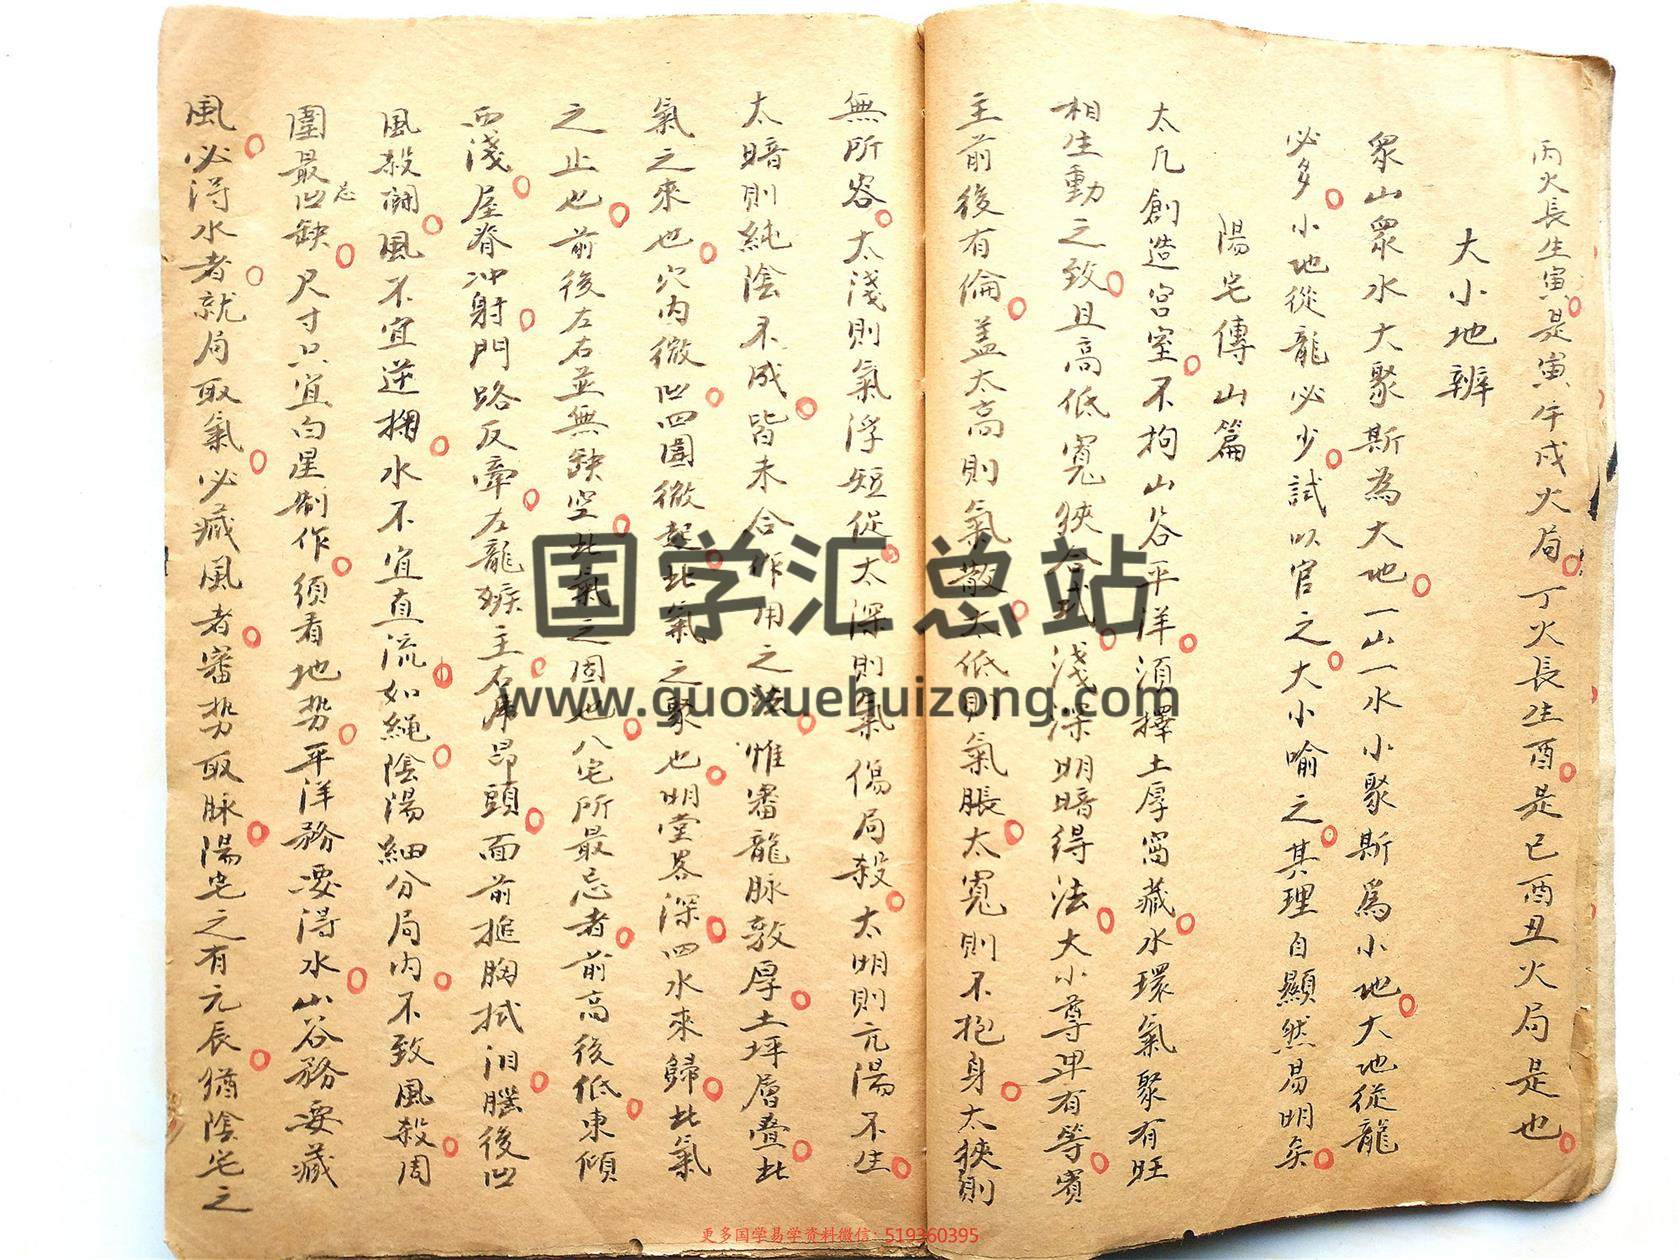 丙火長生寅是寅午戌火局丁火長生酉是巳酉丑火局是也
大小地辨
衆山衆水大聚斯為大地一山一水小聚斯爲小地大地從龍
必多小地從龍必少試以官之大小喻之其理自顯然易明矣
陽宅傳山篇
太凡創造宮室不拘山谷平洋須擇土厚窩藏水環氣聚有旺
相生動之致且高低寬狹合式淺深明暗得法大小尊卑有等賓
主前後有倫盖太高則氣散太低則氣脹太寬則不抱身太狹則
無所容太淺則氣浮短促太深則氣傷局殺太明則亢陽不生
太暗則純陰不成皆未合作用之法惟審龍脉敦厚土坪層疊此
氣之來也穴内微凹四圍微起此氣之聚也明堂畧深四水來歸此氣
之止也前後左右並無缺空此氣之固也八宅所最忌者前高後低東傾
西淺屋脊冲射門路反牽左龍嫉主右虎昂頭面前搥胸拭泪膛後凹
風殺鬪風不宜逆掬水不宜直流如繩陰陽細分局内不致風殺周
圍最忌凹缺尺寸只宜白星制作須看地势平洋務要得水山谷務要藏
風必得水者就局取氣必藏風者審势取脉陽宅之有元辰猶陰宅之
国学汇总站
www.guoxuehuizong.com
更多国学易学资料微信：519360395